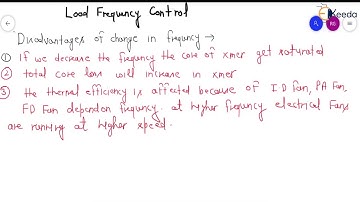 Load Frequency Control
Keeda
Disadvantages of change in frequncy →
① If we decrease the frequency the core of xmer get saturated
② total core loss will increase in xmer
③ the thermal efficiency is affected because of I D Fan, PA Fan,
FD Fan dependen frequency. at higher frequency electrical Fans
are running at higher speed.